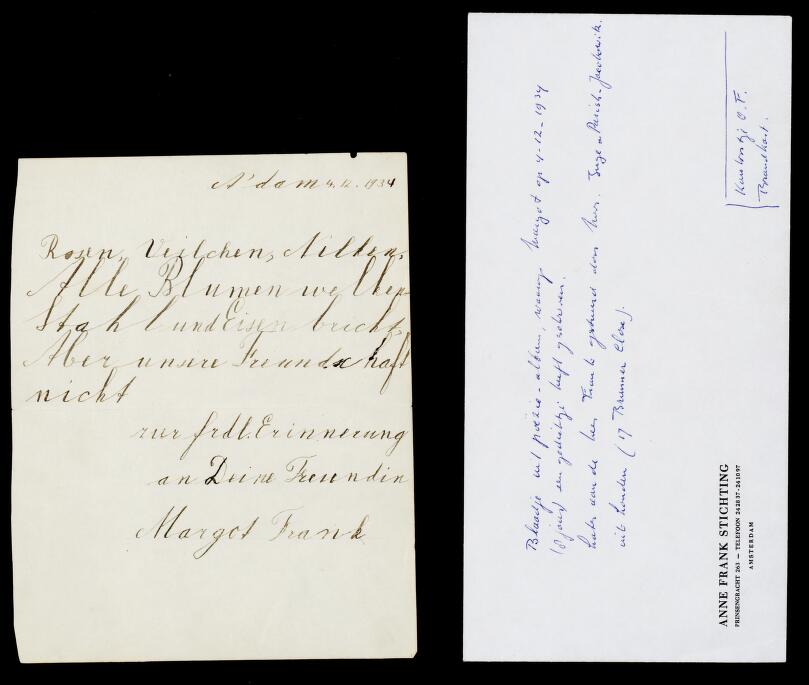 A'dam 4.12.1934
Rosen, Veilchen, Nilken,
Alle Blumen welken
Stahl und Eisen bricht,
Aber unsere Freundschaft
nicht
zur frdl. Erinnerung
an Deine Freundin
Margot Frank
Blaadje uit poëzie-album, waarop Margot op 4-12-1934
(8 jaar) een gedichtje heeft geschreven.
Later aan de heer Frank gestuurd door Mevr. Inge
uit Londen (17 Brunner Close).
O.F.
ANNE FRANK STICHTING
PRINSENGRACHT 263 — TELEFOON 242837-261097
AMSTERDAM